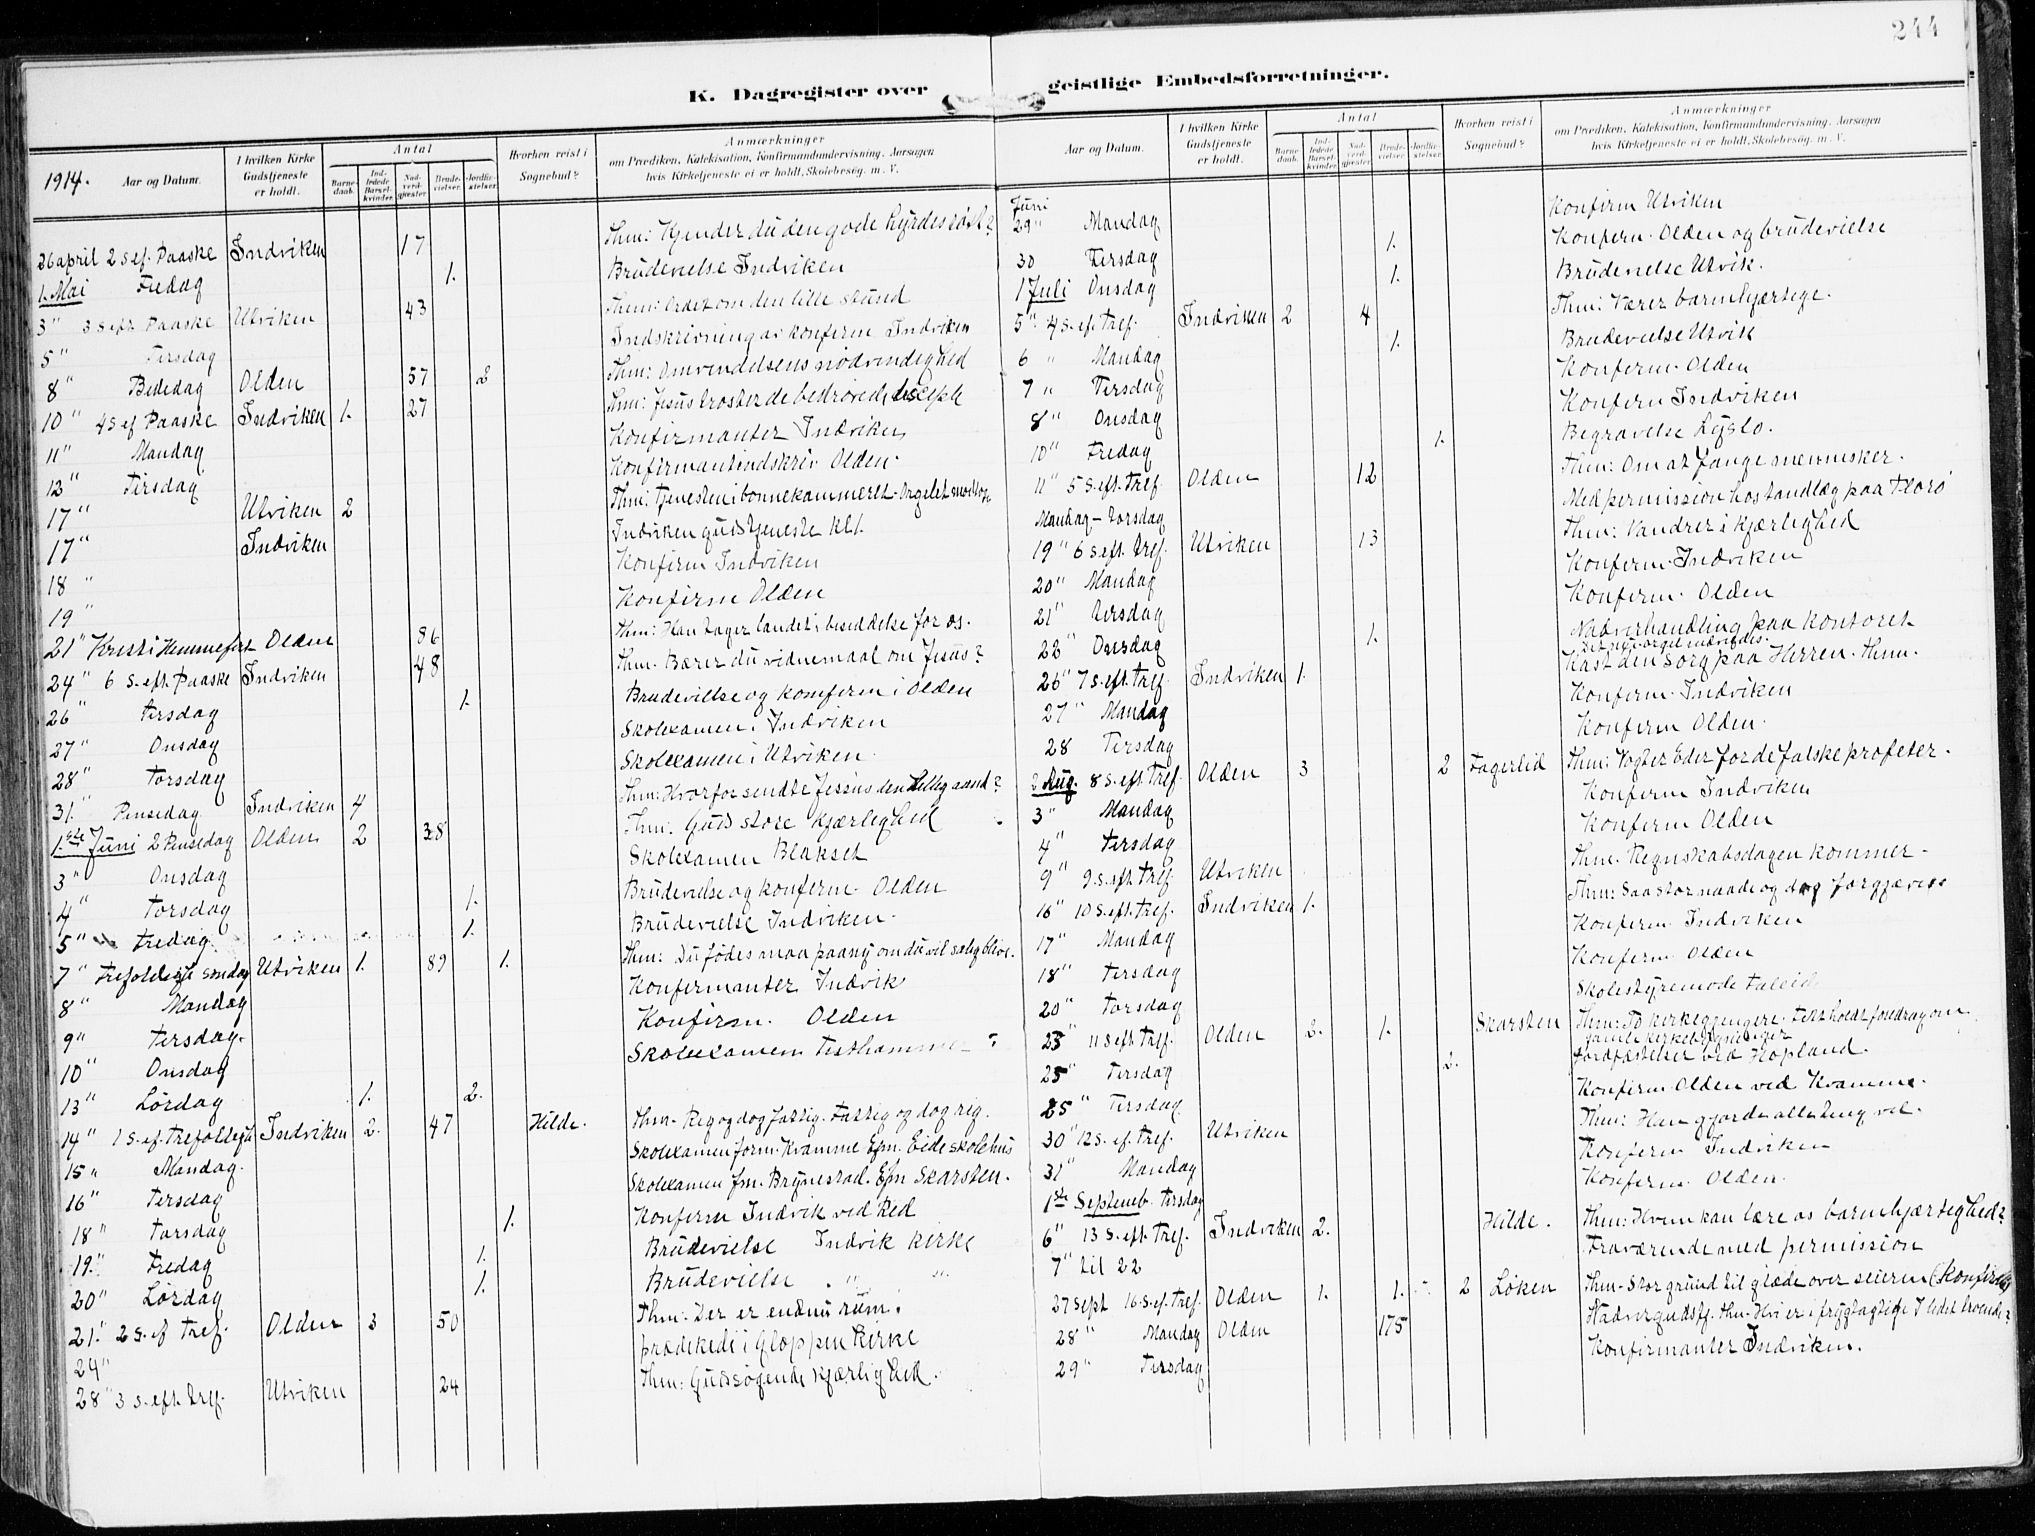 244
K. Dagregister over geistlige Embedsforretninger.
1914. Aar og Datum.
I hvilken Kirke Gudstjeneste er holdt.
Antal
Barnedaab.
Indledede Barselkvinder.
Nadverdgjester
Brudevielser.
Jordfæstelser.
Hvorhen reist i Sognebud?
Anmærkninger
om Prædiken, Katekisation, Konfirmandundervisning, Aarsagen
hvis Kirketjeneste ei er holdt, Skolebesøg. m. V.
26 april 2 S ef. Paaske Indviken 17 Thm: Kjender du den gode hyrdes røst?
1. Mai Fredag 1. Brudevielse Indviken
3" 3 S eft. Paaske Utviken 43 Them: Ordet om den lille stund
5" Tirsdag Indskrivning av konfirm Indviken
8" Bededag Olden 57 2 Thm: Omvendelsens nødvendighed
10" 4 S ef Paaske Indviken 1. 27 Thm: Jesus trøster de bedrøvede disciple
11" Mandag Konfirmanter Indviken
12" Tirsdag Konfirmantindskriv Olden.
17" Utviken 2 Thm: Tjenesten i bønnekammeret.
17" Indviken Indviken gudstjeneste kl 1.
18 " Konfirm Indviken
19 " Konfirm Olden
21" Kristi Himmelfart Olden 86 Thm: Han tager landet i besiddelse for os.
24" 6 S. eft. Paaske Indviken 48 Thm. Bærer du vidnemaal om Jesus?
26" Tirsdag 1. Brudevielse og konfirm i Olden
27" Onsdag Skolexamen i Indviken
28" Torsdag Skolexamen i Utviken.
31" Pinsedag Indviken 4 Thm: Hvorfor sendte Jesus den Hellig aand?
1.ste Juni 2 Pinsedag Olden 2 38 Thm: Guds store kjærlighed
3" Onsdag Skolexamen Blakset
4" Torsdag 1. Brudevielse og konfirm. Olden
5" Fredag 1. Brudevielse Indviken.
7" Trefoldigh søndag Utviken 1. 89 1. Thm: Du fødes maa paany om du vil salig blive.
8" Mandag Konfirmanter Indvik
9" Tirsdag. Konfirm. Olden
10" Onsdag Skolexamen
13" Lørdag 1. 2.
14" 1 S. ef. Trefoldigh Indviken 2. 47 Hilde. Thm. Rig og dog fattig. Fattig og dog rig.
15" Mandag. Skolexamen form. Kvamme Efm. Eide skolehus
16" Tirsdag Skolexamen fm. Brynestad. Efm Skarsten.
18" Torsdag 1. Konfirm Indvik ved Red
19." Fredag 1. Brudevielse Indvik kirke
20" Lørdag 1. Brudevielse " "
21." 2 S. ef Tref. Olden 3 50 Thm: Der er endnu rum.
24" prædikede i Gloppen kirke
28" 3 S. eft. Tref. Utviken 24 Thm: Guds søgende kjærlighed.
Aar og Datum.
I hvilken Kirke Gudstjeneste er holdt.
Antal
Barnedaab.
Indledede Barselkvinder
Nadverdgjester
Brudevielser
Jordfæstelser.
Hvorhen reist i Sognebud?
Anmærkninger
om Prædiken, Katekisation, Konfirmandundervisning, Aarsagen
hvis Kirketjeneste ei er holdt, Skolebesøg. m. V.
Juni
29" Mandag Konfirm Utviken
30 Tirsdag 1. Konfirm. Olden og brudevielse
1 Juli Onsdag 1. Brudevielse Utvik.
5" 4 S. ef. Tref. Indviken 2 4 Thm: Værer barmhjærtige.
6 " Mandag 1. Brudevielse Utvik
7 " Tirsdag Konfirm. Olden
8" Onsdag Konfirm Indviken
10" Fredag 1. Begravelse Lyslo.
11" 5 S. eft. Tref. Olden 12 Thm: Om at fange mennesker.
Mandag - Torsdag Med permission hos tandlæg paa Florø
19" 6 S. eft. Tref. Utviken 13 Thm: Vandrer i kjærlighed
20" Mandag Konfirm. Indviken
21" Tirsdag Konfirm. Olden
22" Onsdag 1. Nadverhandling paa kontoret
26" 7 S. eft. Tref. Indviken 1. Kast den sorg paa Herren. Thm.
27" Mandag Konfirm. Indviken
28 Tirsdag Konfirm Olden.
2 Aug. 8 S. eft Tref. Olden 3 2 Fagerlid Thm: Vogter Eder for de falske profeter.
3" Mandag Konfirm Indviken
4" Tirsdag Konfirm Olden
9" 9 S. eft Tref. Utviken Thm. Regnskabsdagen kommer.
16" 10 S. eft. Tref. Indviken 1. Thm: Saa stor naade og dog forgjæves
17" Mandag Konfirm. Indviken
18" Tirsdag Konfirm. Olden
20" Torsdag Skolestyremøde
23" 11 S eft Tref. Olden 2. 1. Skarsten Thm: To kirkegjengere. holdt foredrag om
25" Tirsdag 2. Jordfæstelser ved Hopland.
25" Tirsdag. Konfirm Olden ved Kvamme.
30" 12 S. ef. Tref. Utviken Thm: Han gjorde alle ting vel.
31" Mandag Konfirm Indviken
1ste Septemb. Tirsdag Konfirm. Olden.
6" 13 S. eft. Tref. Indviken 2. Hilde. Thm: Hvem kan lære os barmhjærtighed?
7" til 22 Fraværende med permission
27 Sept 16 S. ef. Tref. Olden 1. 1. 2 Løken Thm. Stor grund til glæde over seieren
28" Mandag Olden 175
29" Tirsdag Konfirmanter Indviken.